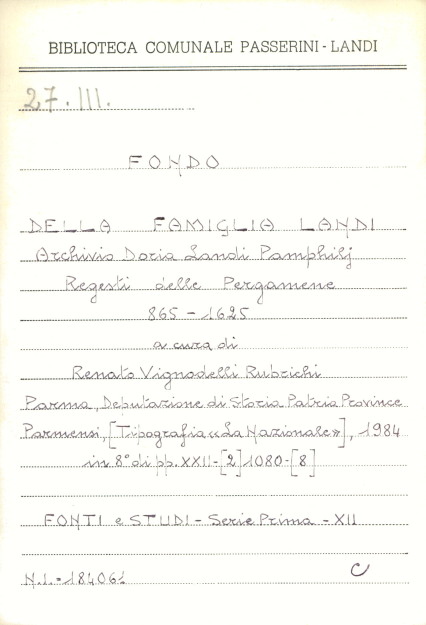 BIBLIOTECA COMUNALE PASSERINI-LANDI
27.III.
FONDO
DELLA FAMIGLIA LANDI
Archivio Doria Landi Pamphilj
Regesti delle Pergamene
865 - 1625
a cura di
Renato Vignodelli Rubrichi
Parma, Deputazione di Storia Patria Province
Parmensi, [Tipografia «La Nazionale»], 1984
in 8° di pp. XXII-[2]1080-[8]
FONTI e STUDI - Serie Prima - XII
N.I. = 184061
C